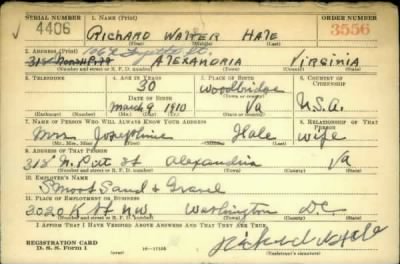 SERIAL NUMBER 1. NAME (Print) ORDER NUMBER
4406 RICHARD WALTER HALE 3556
(First) (Middle) (Last)
2. ADDRESS (Print) 106 St.
ALEXANDRIA VIRGINIA
(Number and street or R. F. D. number) (Town) (County) (State)
3. TELEPHONE 4. AGE IN YEARS 5. PLACE OF BIRTH 6. COUNTRY OF CITIZENSHIP
30 Woodbridge
DATE OF BIRTH (Town or county)
March 9 1910 Va U.S.A.
(Exchange) (Number) (Mo.) (Day) (Yr.) (State or country)
7. NAME OF PERSON WHO WILL ALWAYS KNOW YOUR ADDRESS 8. RELATIONSHIP OF THAT PERSON
Mrs Josephine Hale wife
(Mr., Mrs., Miss) (First) (Middle) (Last)
9. ADDRESS OF THAT PERSON
318 N. Pitt St Alexandria Va
(Number and street or R. F. D. number) (Town) (County) (State)
10. EMPLOYER'S NAME
Smoot Sand & Gravel
11. PLACE OF EMPLOYMENT OR BUSINESS
3020 K St NW Washington D.C.
(Number and street or R. F. D. number) (Town) (County) (State)
I AFFIRM THAT I HAVE VERIFIED ABOVE ANSWERS AND THAT THEY ARE TRUE.
REGISTRATION CARD
D. S. S. Form 1 16—17105 Richard W Hale
(Registrant's signature)